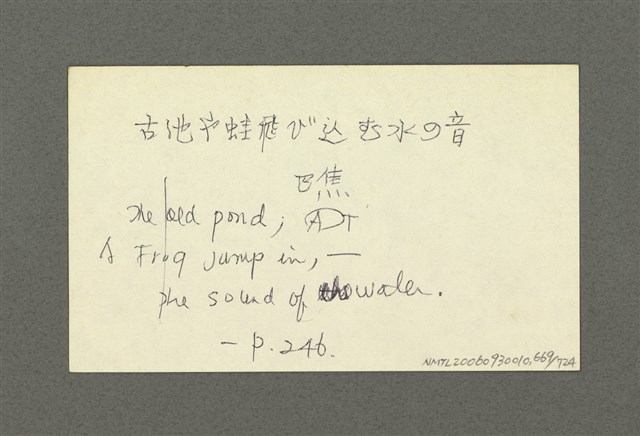 古池や蛙飛び込む水の音
芭焦
The old pond;
A Frog jump in, —
the sound of water.
— p. 246.
NMTL20060930010.669/724